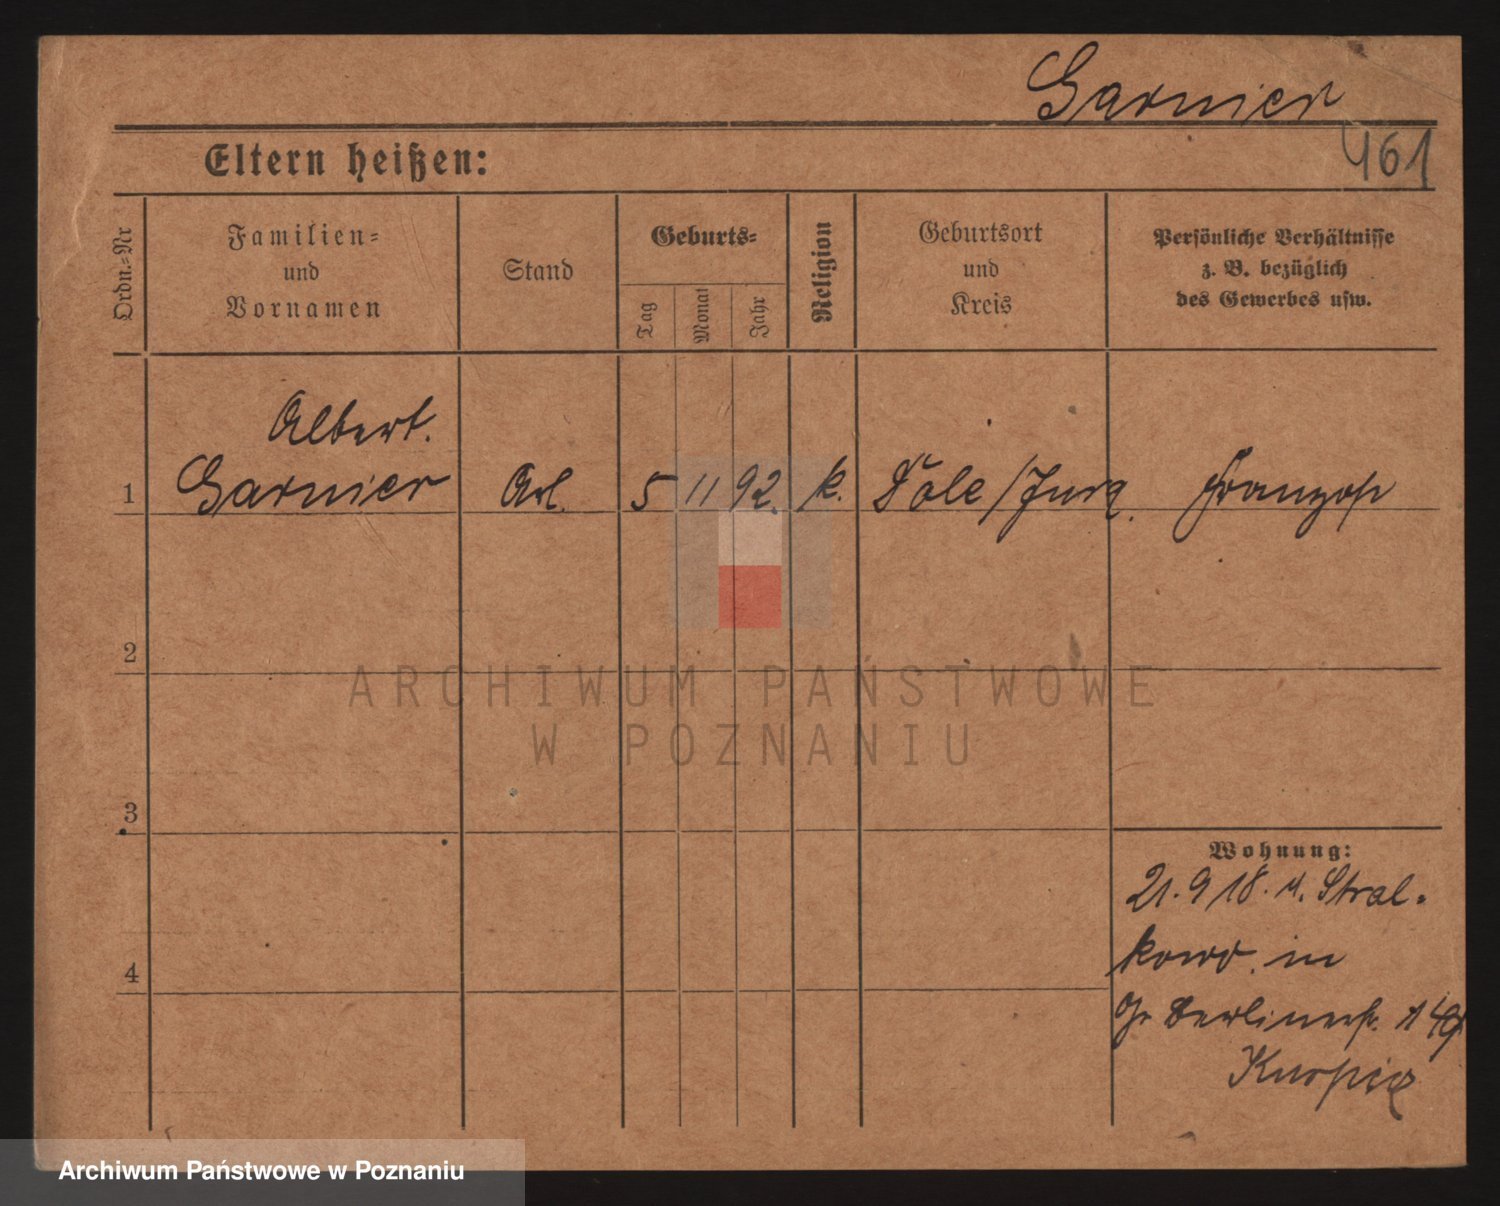 Garnier
461
Eltern heißen:
Ordn.-Nr
Familien-
und
Vornamen
Stand
Geburts-
Tag
Monat
Jahr
Religion
Geburtsort
und
Kreis
Persönliche Verhältnisse
z. B. bezüglich
des Gewerbes usw.
Albert.
1 Garnier Arb. 5 11 92. k. Dôle/Jura. Franzose
2
ARCHIWUM PAŃSTWOWE
W POZNANIU
3
Wohnung:
21. 9 18. v. Stral-
kowo in
Gr Berlinerstr.
4
Archiwum Państwowe w Poznaniu